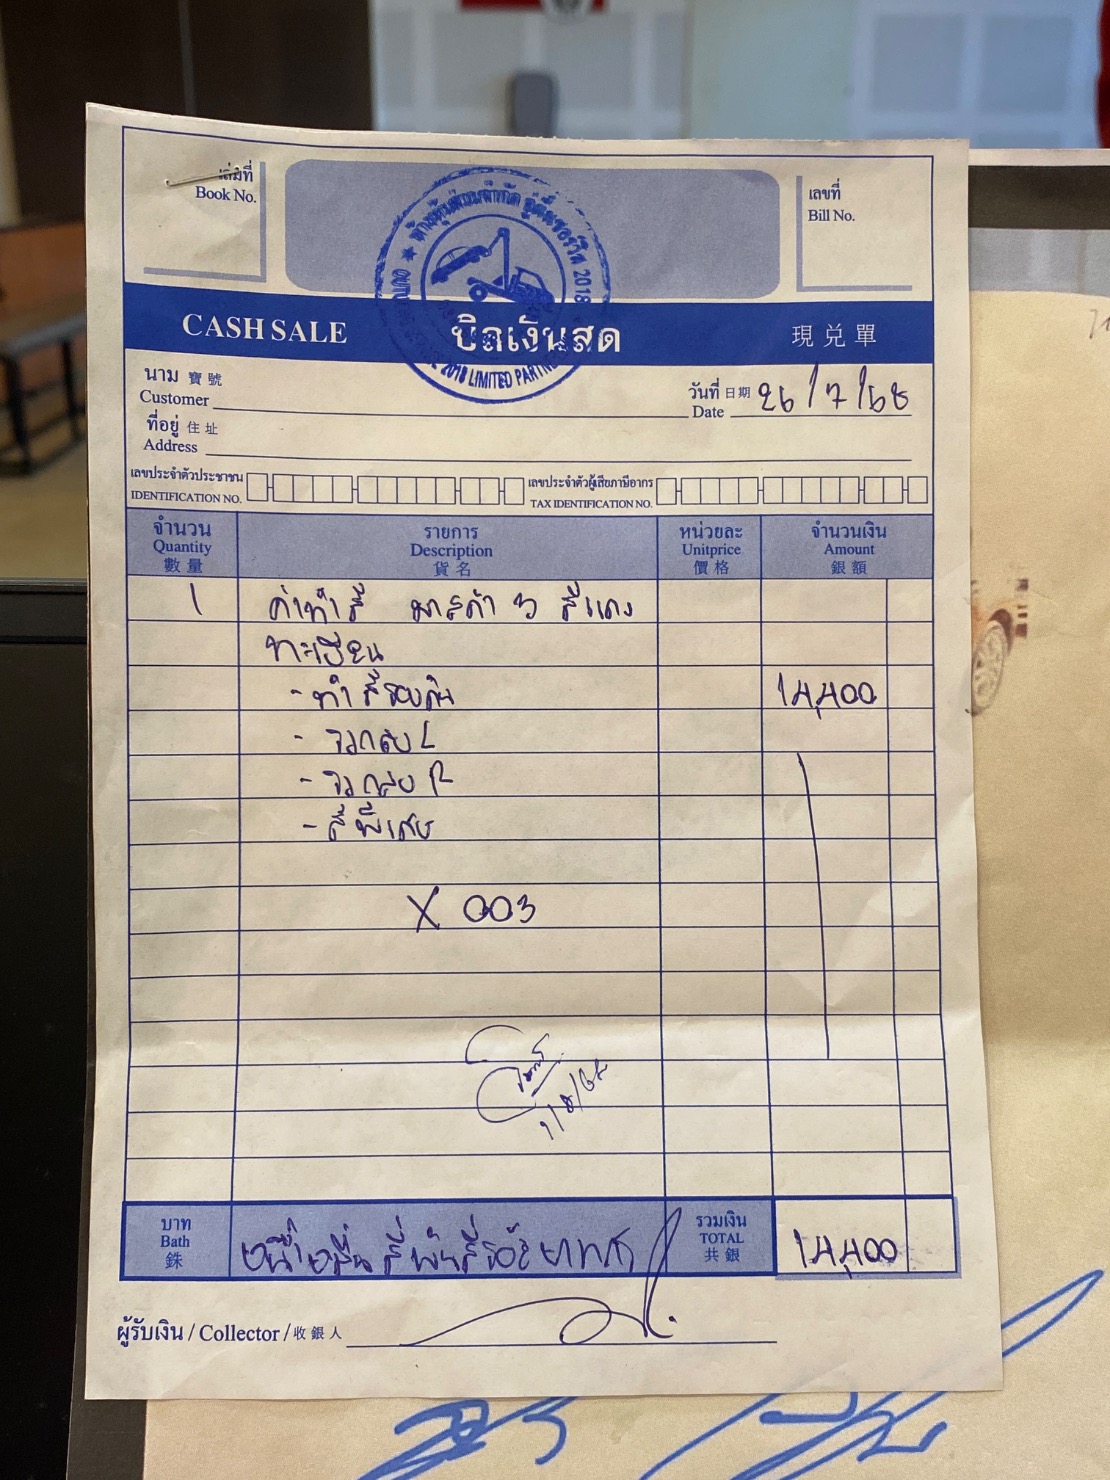 เล่มที่
Book No.
เลขที่
Bill No.
ห้างหุ้นส่วนจำกัด 2018
2018 LIMITED PARTN
CASH SALE บิลเงินสด 現兑單
นาม 寶號
Customer
วันที่ 日期 26/7/68
Date
ที่อยู่ 住址
Address
เลขประจำตัวประชาชน
IDENTIFICATION NO.
เลขประจำตัวผู้เสียภาษีอากร
TAX IDENTIFICATION NO.
จำนวน รายการ หน่วยละ จำนวนเงิน
Quantity Description Unitprice Amount
數量 貨名 價格 銀額
1 ค่าทำสี มาสด้า 3 สีแดง
ทะเบียน
- ทำสีรอบคัน 14,400
- กระจก L
- กระจก R
- สีพิเศษ
X 003
1/8/68
บาท
Bath
銖
หนึ่งหมื่นสี่พันสี่ร้อยบาท
รวมเงิน
TOTAL
共銀
14,400
ผู้รับเงิน / Collector / 收銀人